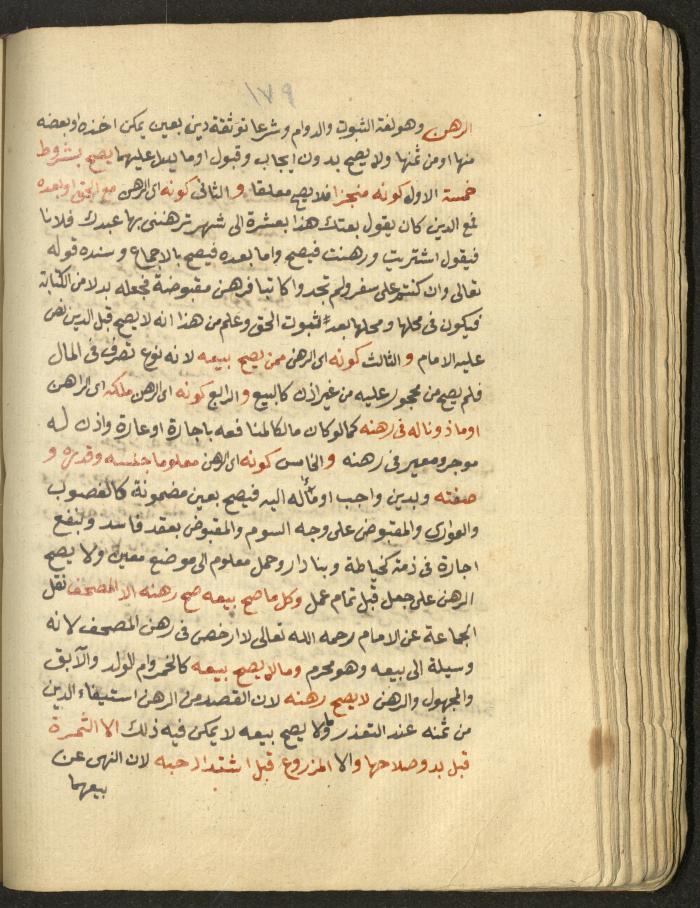 ١٧٩
الرهن وهو لغة الثبوت والدوام وشرعا توثقة دين بعين يمكن اخذه او بعضه
منها او من ثمنها ولا يصح بدون ايجاب وقبول او ما يدل عليهما يصح بشروط
خمسة الاول كونه منجزا فلا يصح معلقا والثاني كونه اى الرهن مع الحق او بعده
فمع الدين كان يقول بعتك هذا بعشرة الى شهر ترهننى بها عبدك فلانا
فيقول اشتريت ورهنت فيصح واما بعده فيصح بالاجماع وسنده قوله
تعالى وان كنتم على سفر ولم تجدوا كاتبا فرهن مقبوضة فجعله بدلا من الكتابة
فيكون فى محلها ومحلها بعد ثبوت الحق وعلم من هذا انه لا يصح قبل الدين نص
عليه الامام والثالث كونه اى الرهن ممن يصح بيعه لانه نوع تصرف فى المال
فلم يصح من محجور عليه من غير اذن كالبيع والرابع كونه اى الرهن ملكه اى الراهن
او ماذونا له فى رهنه كما لو كان مالكا لمنافعه باجارة او عارة واذن له
موجر ومعير فى رهنه والخامس كونه اى الرهن معلوما جنسه وقدره و
صفته وبدين واجب او مآله اليه فيصح بعين مضمونة كالغصوب
والعوارى والمقبوض على وجه السوم والمقبوض بعقد فاسد وبنفع
اجارة فى ذمة كخياطة وبنا دار وحمل معلوم الى موضع معين ولا يصح
الرهن على جعل قبل تمام عمل وكل ما صح بيعه صح رهنه الا المصحف نقل
الجماعة عن الامام رحمه الله تعالى لا ارخص فى رهن المصحف لانه
وسيلة الى بيعه وهو محرم وما لا يصح بيعه كالخمر وام الولد والآبق
والمجهول والرهن لا يصح رهنه لان القصد من الرهن استيفاء الدين
من ثمنه عند التعذر وما لا يصح بيعه لا يمكن فيه ذلك الا الثمرة
قبل بدو صلاحها والا المزروع قبل اشتداد حبه لان النهى عن
بيعهما